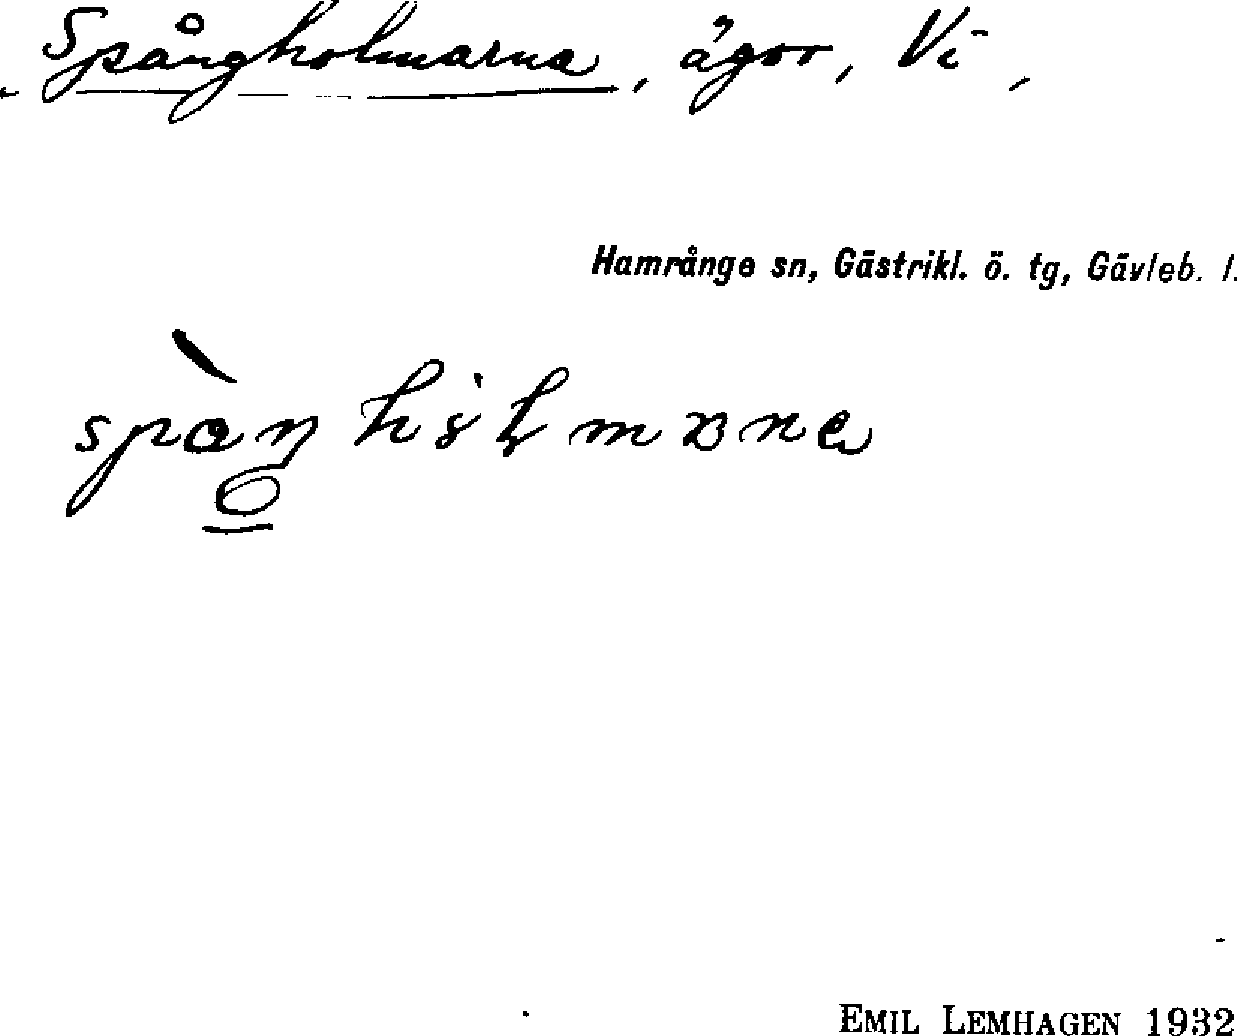 Spångholmarna, ägor, Vi,
Hamrånge sn, Gästrikl. ö. tg, Gävleb. l.
EMIL LEMHAGEN 1932